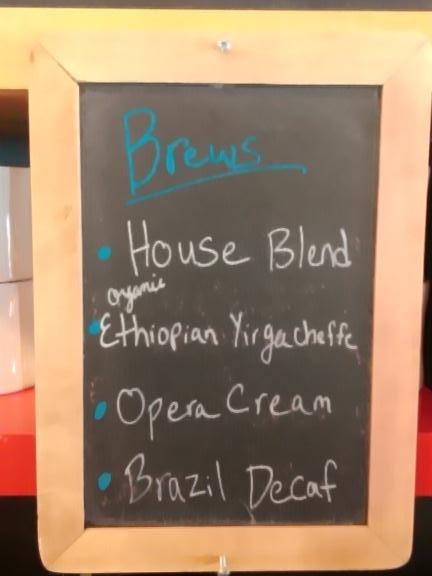 Brews
• House Blend
organic
• Ethiopian Yirgacheffe
• Opera Cream
• Brazil Decaf